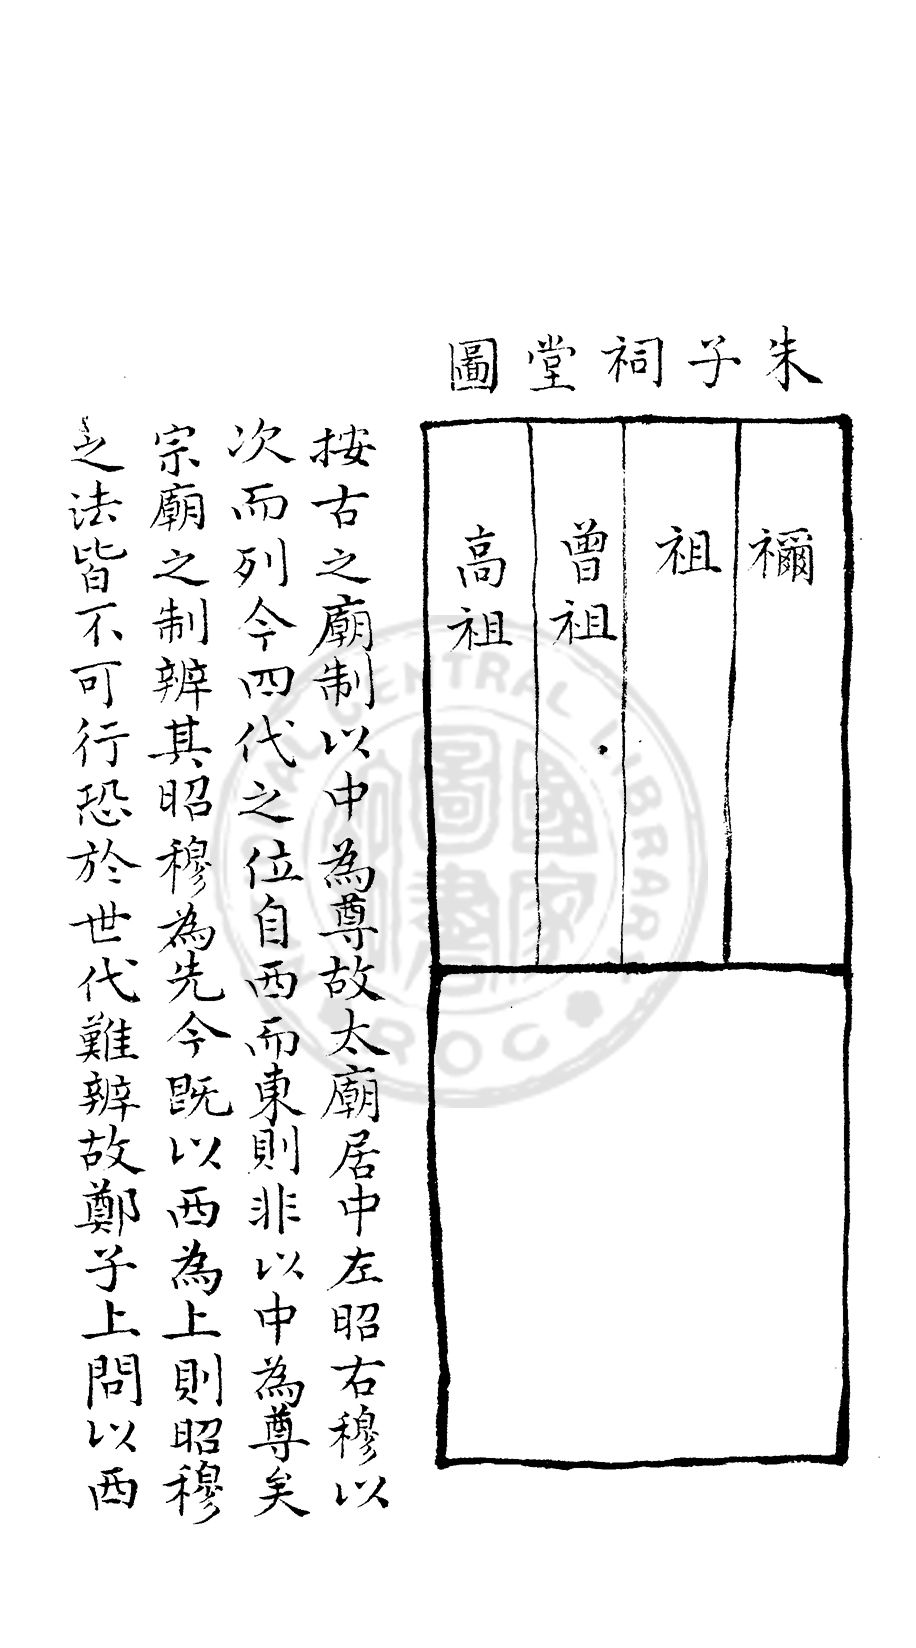 朱子祠堂圖
禰
祖
曾祖
高祖
按古之廟制以中為尊故太廟居中左昭右穆以
次而列今四代之位自西而東則非以中為尊矣
宗廟之制辨其昭穆為先今既以西為上則昭穆
之法皆不可行恐於世代難辨故鄭子上問以西
NATIONAL CENTRAL LIBRARY
ROC
國家圖書館